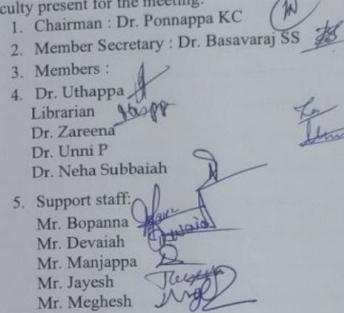 culty present for the meeting.
1. Chairman : Dr. Ponnappa KC
2. Member Secretary : Dr. Basavaraj SS
3. Members :
4. Dr. Uthappa
Librarian
Dr. Zareena
Dr. Unni P
Dr. Neha Subbaiah
5. Support staff:
Mr. Bopanna
Mr. Devaiah
Mr. Manjappa
Mr. Jayesh
Mr. Meghesh